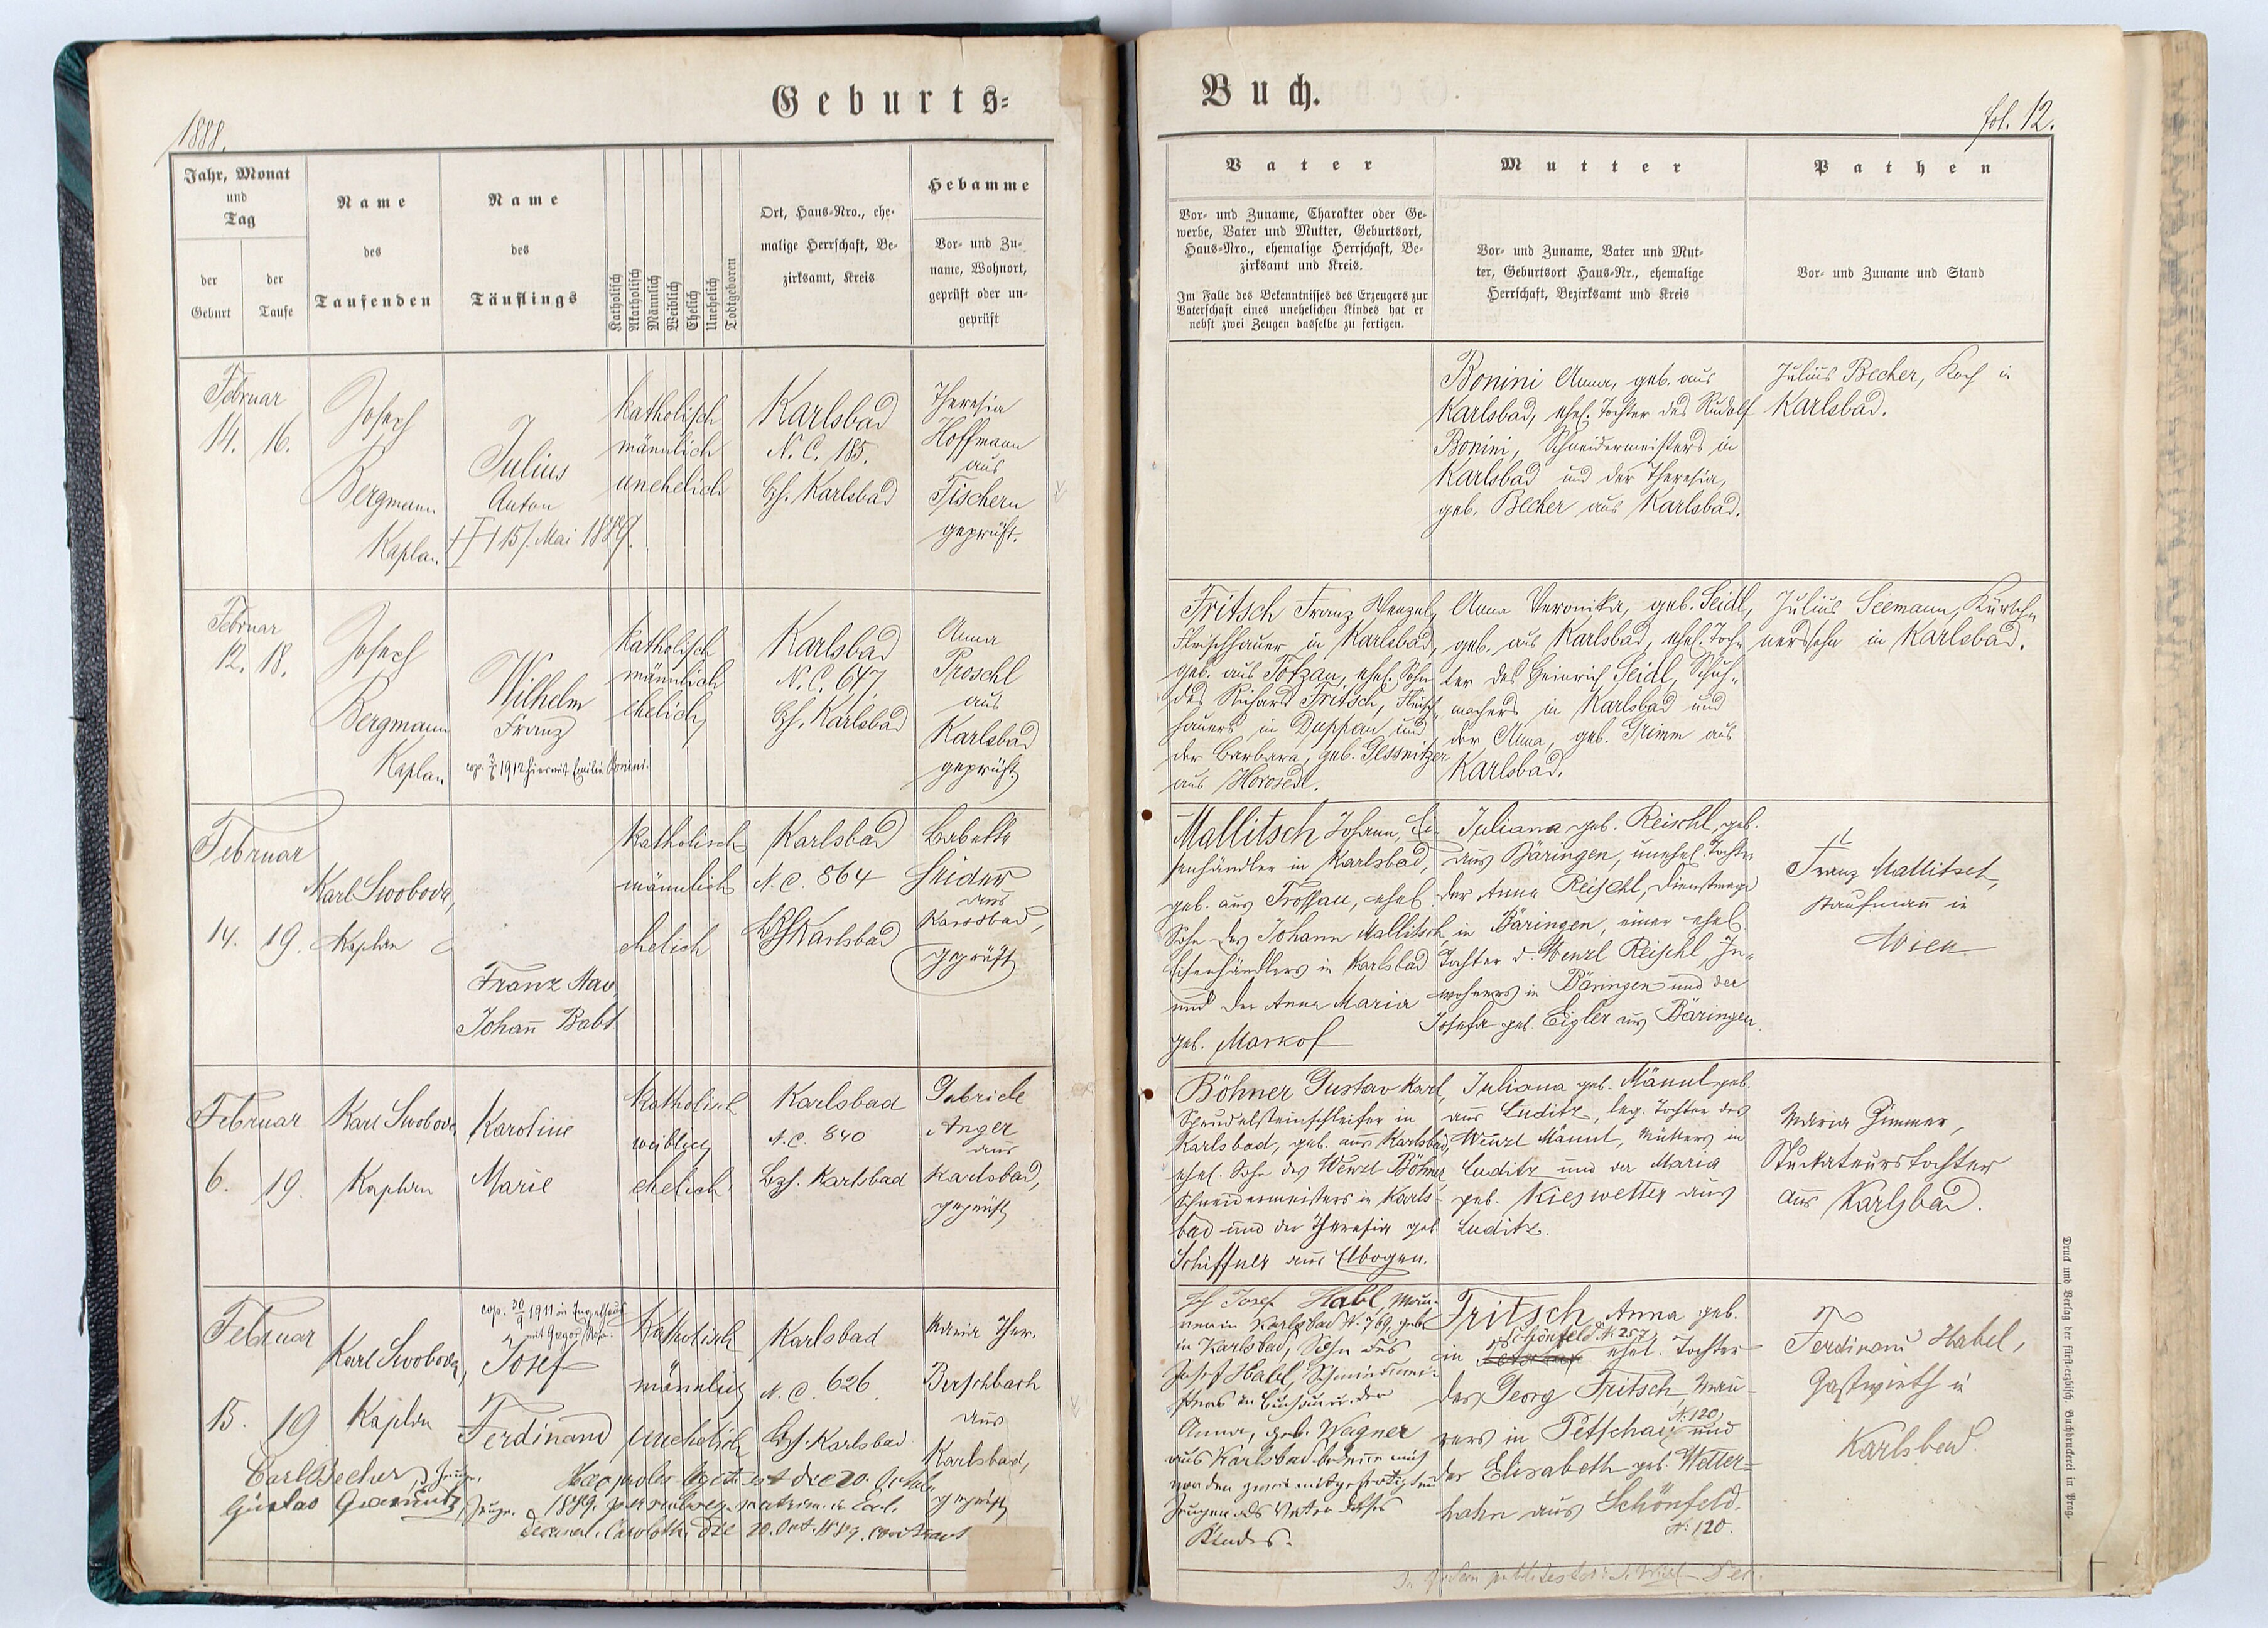 Geburts=
Buch.
1888.
fol. 12.
Jahr, Monat
und
Tag
der
Geburt
der
Taufe
Name
des
Taufenden
Name
des
Täuflings
Katholisch
Akatholisch
Männlich
Weiblich
Ehelich
Unehelich
Todtgeboren
Ort, Haus-Nro., ehe-
malige Herrschaft, Be-
zirksamt, Kreis
Hebamme
Vor- und Zu-
name, Wohnort,
geprüft oder un-
geprüft
Vater
Vor- und Zuname, Charakter oder Ge-
werbe, Vater und Mutter, Geburtsort,
Haus-Nro., ehemalige Herrschaft, Be-
zirksamt und Kreis.
Im Falle des Bekenntnisses des Erzeugers zur
Vaterschaft eines unehelichen Kindes hat er
nebst zwei Zeugen dasselbe zu fertigen.
Mutter
Vor- und Zuname, Vater und Mut-
ter, Geburtsort Haus-Nr., ehemalige
Herrschaft, Bezirksamt und Kreis
Pathen
Vor- und Zuname und Stand
Februar
14. 16.
Josef
Bergmann
Kaplan
Julius
Anton
† 15/. Mai 1889.
katholisch
männlich
unehelich
Karlsbad
N. C. 185.
Bh. Karlsbad
Theresia
Hoffmann
aus
Fischern
geprüft.
Bonini Anna, geb. aus
Karlsbad, ehel. Tochter des Rudolf
Bonini, Schneidermeisters in
Karlsbad und der Theresia,
geb. Becher aus Karlsbad.
Julius Becher, Koch in
Karlsbad.
Februar
12. 18.
Josef
Bergmann
Kaplan
Wilhelm
Franz
cop. 1912 hier mit Emilie Bonini.
katholisch
männlich
ehelich
Karlsbad
N. C. 647.
Bh. Karlsbad
Anna
Proschl
aus
Karlsbad
geprüft
Fritsch Franz Wenzel,
Fleischhauer in Karlsbad,
geb. aus Totzau, ehel. Sohn
des Richard Fritsch, Fleisch-
hauers in Duppau und
der Barbara, geb. Glessnitzer
aus Horosedl.
Anna Veronika, geb. Seidl,
geb. aus Karlsbad, ehel. Toch-
ter des Heinrich Seidl, Schuh-
machers in Karlsbad und
der Anna, geb. Grimm aus
Karlsbad.
Julius Seemann, Kürsch-
nerssohn in Karlsbad.
Februar
14. 19.
Karl Swoboda,
Kaplan
Franz
Johann
katholisch
männlich
ehelich
Karlsbad
N. C. 864
Bh Karlsbad
Babette
aus
Karlsbad,
geprüft
Mallitsch Johann, Ei-
senhändler in Karlsbad,
geb. aus Trossau, ehel.
Sohn des Johann Mallitsch
Eisenhändlers in Karlsbad
und der Anna Maria
geb. Markof
Juliana geb. Reischl, geb.
aus Bäringen, unehel. Tochter
der Anna Reischl, Dienstmagd
in Bäringen, einer ehel.
Tochter d. Wenzl Reischl, In-
wohners in Bäringen und der
Josefa geb. Eigler aus Bäringen.
Franz Mallitsch,
Kaufmann in
Wien
Februar
6. 19.
Karl Swoboda,
Kaplan
Karoline
Marie
katholisch
weiblich
ehelich
Karlsbad
N. C. 840
Bzh. Karlsbad
Gabriele
Anger
aus
Karlsbad,
geprüft
Böhner Gustav Karl,
Sprudelsteinschleifer in
Karlsbad, geb. aus Karlsbad,
ehel. Sohn des Wenzl Böhner
Schneidermeisters in Karls-
bad und der Theresia geb.
Schiffner aus Elbogen.
Juliana geb. Männl geb.
aus Luditz, leg. Tochter des
Wenzl Männl, Müllers in
Luditz und der Maria
geb. Kieswetter aus
Luditz.
Maria Zimmer,
Stuckateurstochter
aus Karlsbad.
Februar
15. 19
Karl Swoboda,
Kaplan
cop. 30/9 1911 in Engelhaus
mit
Josef
Ferdinand
katholisch
männlich
unehelich
Karlsbad
N. C. 626.
Bzh. Karlsbad
Maria Ther.
Berschbach
aus
Karlsbad,
geprüft
Carl Becher, Zeuge.
Gustav Zeuge.
Haec proles die 20. Octob.
1889. per
die 20. Oct. 1889.
Ich Josef Habl, Mau-
rer in Karlsbad N. 769, geb.
in Karlsbad, Sohn des
Josef Habl, Schmiedmei-
sters in Buchau u. der
Anna, geb. Wagner
aus Karlsbad bekenne mich
vor den zwei mitgefertigten
Zeugen als Vater dieses
Kindes.
Fritsch Anna geb.
Schönfeld N: 257
in Petschau ehel. Tochter
des Georg Fritsch Mau-
N: 120
rers in Petschau und
der Elisabeth geb. Wetter-
hahn aus Schönfeld.
N: 120.
Ferdinand Habel,
Gastwirth in
Karlsbad.
Druck und Verlag der fürst-erzbisch. Buchdruckerei in Prag.